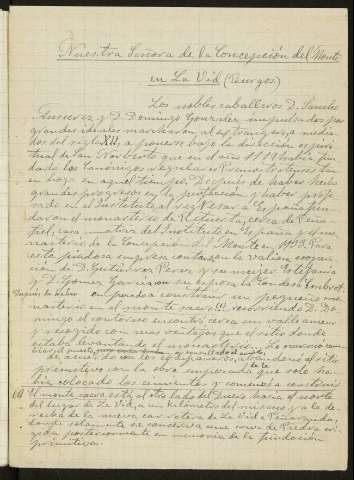 Nuestra Señora de la Concepción del Monte
en La Vid (Burgos.)
Los nobles caballeros D. Sancho
Ansurez y D. Domingo Gonzalez impulsados por
grandes ideales marcharon al extrangero, a media-
dos del siglo XII, a ponerse bajo la dirección espiri-
tual de San Norberto que en el año 1119 había fun-
dado los canonigos regulares Premonstratenses tan
en boga en aquel tiempo. Despues de haber hecho
grandes progresos en la perfección y haber profe-
sado en el Instituto, al regresar a España fun-
daron el monasterio de Retuerta, cerca de Peña-
fiel, casa matriz del Instituto en España y el mo-
nasterio de la Concepción del Monte en 1133. Para
esta piadosa empresa contó con la valiosa coopera-
ción de D. Gutierrez Perez y su mujer Estefania
y D. Gomez Garcia con su esposa la Condesa
en poder construir un pequeño mo-
nasterio en el monte sacro (1), recorriendo D. Do-
mingo el contorno encontró cerca un valle ameno
y recogido con mas ventajas que el sitio donde
estaba levantando el monasterio,
de acuerdo con los compañeros, abandonó el sitio
primitivo con la obra empezada de la que solo ha-
bia colocado los cimientos y comenzó a construir
(1) El monte sacro está al otro lado del Duero hacia el norte
del lugar de La Vid, a un kilómetro del mismo y a la de-
recha de la nueva carretera de La Vid a Peñaranda,
donde solamente se conserva una cruz de Piedra eri-
gida posteriormente en memoria de la fundación
primitiva.